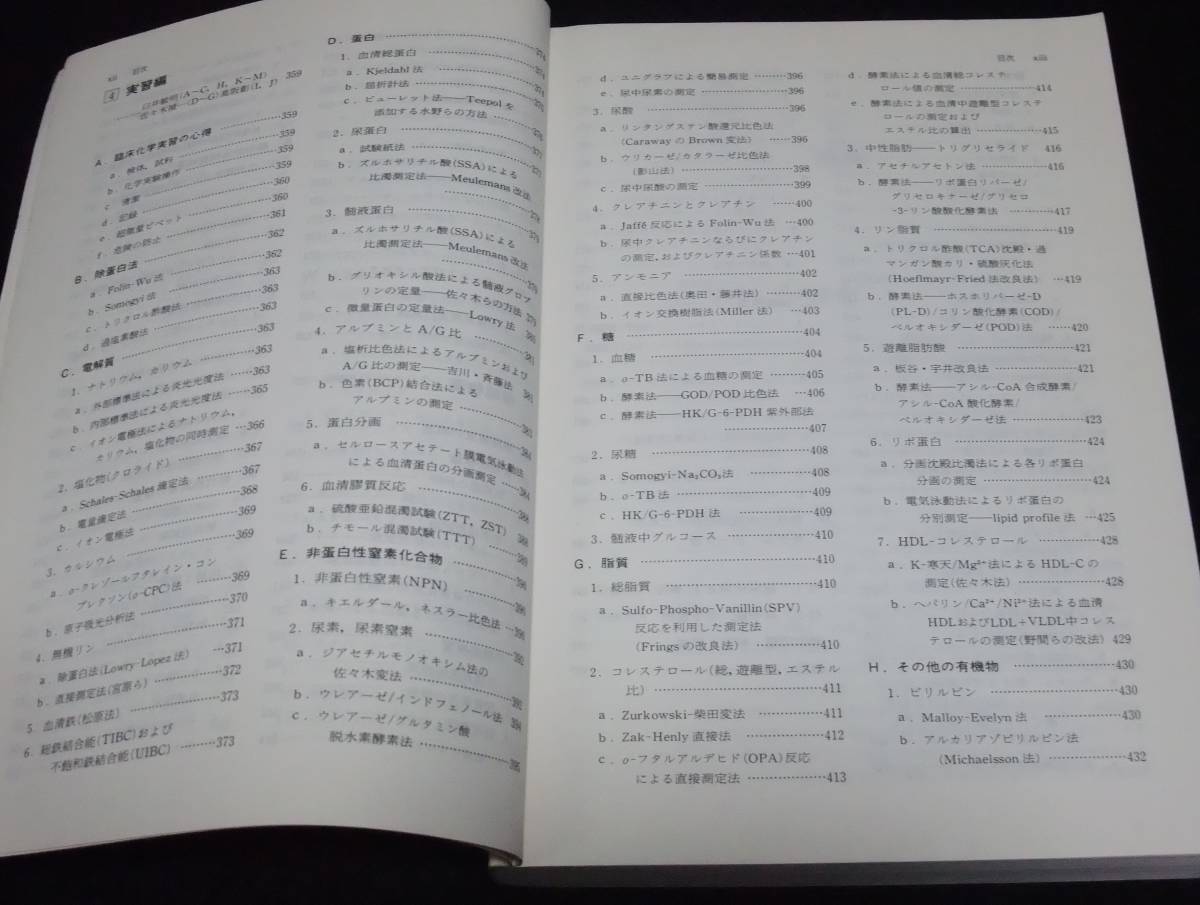 xii 目次
4 実習編
臼井敏明(A〜C, H, K〜M) 359
A．臨床化学実習の心得 359
a．検体，試料 359
b．化学実験操作 359
c．清潔 360
d．記録 360
e．超微量ピペット 361
f．危険の防止 362
B．除蛋白法 362
a．Folin-Wu法 363
b．Somogyi法 363
c．トリクロル酢酸法 363
d．過塩素酸法 363
C．電解質 363
1．ナトリウム，カリウム 363
a．外部標準法による炎光光度法 363
b．内部標準法による炎光光度法 365
c．イオン電極法によるナトリウム，
カリウム，塩化物の同時測定 366
2．塩化物(クロライド) 367
a．Schales-Schales滴定法 367
b．電量滴定法 368
c．イオン電極法 369
3．カルシウム 369
a．o-クレゾールフタレイン・コン
プレクソン(o-CPC)法 369
b．原子吸光分析法 370
4．無機リン 371
a．除蛋白法(Lowry-Lopez法) 371
b．直接測定法(宮原ら) 372
5．血清鉄(松原法) 373
6．総鉄結合能(TIBC)および
不飽和鉄結合能(UIBC) 373
D．蛋白
1．血清総蛋白
a．Kjeldahl法
b．屈折計法
c．ビューレット法——Teepolを
添加する水野らの方法
2．尿蛋白
a．試験紙法
b．ズルホサリチル酸(SSA)による
比濁測定法——Meulemans改法
3．髄液蛋白
a．ズルホサリチル酸(SSA)による
比濁測定法——Meulemans改法
b．グリオキシル酸法による髄液グロブ
リンの定量——佐々木らの方法
c．微量蛋白の定量法——Lowry法
4．アルブミンとA/G比
a．塩析比色法によるアルブミンおよび
A/G比の測定——吉川・斉藤法
b．色素(BCP)結合法による
アルブミンの測定
5．蛋白分画
a．セルロースアセテート膜電気泳動法
による血清蛋白の分画測定
6．血清膠質反応
a．硫酸亜鉛混濁試験(ZTT, ZST)
b．チモール混濁試験(TTT)
E．非蛋白性窒素化合物
1．非蛋白性窒素(NPN)
a．キエルダール，ネスラー比色法
2．尿素，尿素窒素
a．ジアセチルモノオキシム法の
佐々木変法
b．ウレアーゼ/インドフェノール法
c．ウレアーゼ/グルタミン酸
脱水素酵素法
目次 xiii
d．ユニグラフによる簡易測定 396
e．尿中尿素の測定 396
3．尿酸 396
a．リンタングステン酸還元比色法
(CarawayのBrown変法) 396
b．ウリカーゼ/カタラーゼ比色法
(影山法) 398
c．尿中尿酸の測定 399
4．クレアチニンとクレアチン 400
a．Jaffé反応によるFolin-Wu法 400
b．尿中クレアチニンならびにクレアチン
の測定，およびクレアチニン係数 401
5．アンモニア 402
a．直接比色法(奥田・藤井法) 402
b．イオン交換樹脂法(Miller法) 403
F．糖 404
1．血糖 404
a．o-TB法による血糖の測定 405
b．酵素法——GOD/POD比色法 406
c．酵素法——HK/G-6-PDH紫外部法
407
2．尿糖 408
a．Somogyi-Na₂CO₃法 408
b．o-TB法 409
c．HK/G-6-PDH法 409
3．髄液中グルコース 410
G．脂質 410
1．総脂質 410
a．Sulfo-Phospho-Vanillin(SPV)
反応を利用した測定法
(Fringsの改良法) 410
2．コレステロール(総，遊離型，エステル
比) 411
a．Zurkowski-柴田変法 411
b．Zak-Henly直接法 412
c．o-フタルアルデヒド(OPA)反応
による直接測定法 413
d．酵素法による血清総コレステ
ロール値の測定 414
e．酵素法による血清中遊離型コレステ
ロールの測定および
エステル比の算出 415
3．中性脂肪——トリグリセライド 416
a．アセチルアセトン法 416
b．酵素法——リポ蛋白リパーゼ/
グリセロキナーゼ/グリセロ
-3-リン酸酸化酵素法 417
4．リン脂質 419
a．トリクロル酢酸(TCA)沈殿・過
マンガン酸カリ・硫酸灰化法
(Hoeflmayr-Fried法改良法) 419
b．酵素法——ホスホリパーゼ-D
(PL-D)/コリン酸化酵素(COD)/
ペルオキシダーゼ(POD)法 420
5．遊離脂肪酸 421
a．板谷・宇井改良法 421
b．酵素法——アシル-CoA合成酵素/
アシル-CoA酸化酵素/
ペルオキシダーゼ法 423
6．リポ蛋白 424
a．分画沈殿比濁法による各リポ蛋白
分画の測定 424
b．電気泳動法によるリポ蛋白の
分別測定——lipid profile法 425
7．HDL-コレステロール 428
a．K-寒天/Mg²⁺法によるHDL-Cの
測定(佐々木法) 428
b．ヘパリン/Ca²⁺/Ni²⁺法による血清
HDLおよびLDL+VLDL中コレス
テロールの測定(野間らの改法) 429
H．その他の有機物 430
1．ビリルビン 430
a．Malloy-Evelyn法 430
b．アルカリアゾビリルビン法
(Michaelsson法) 432